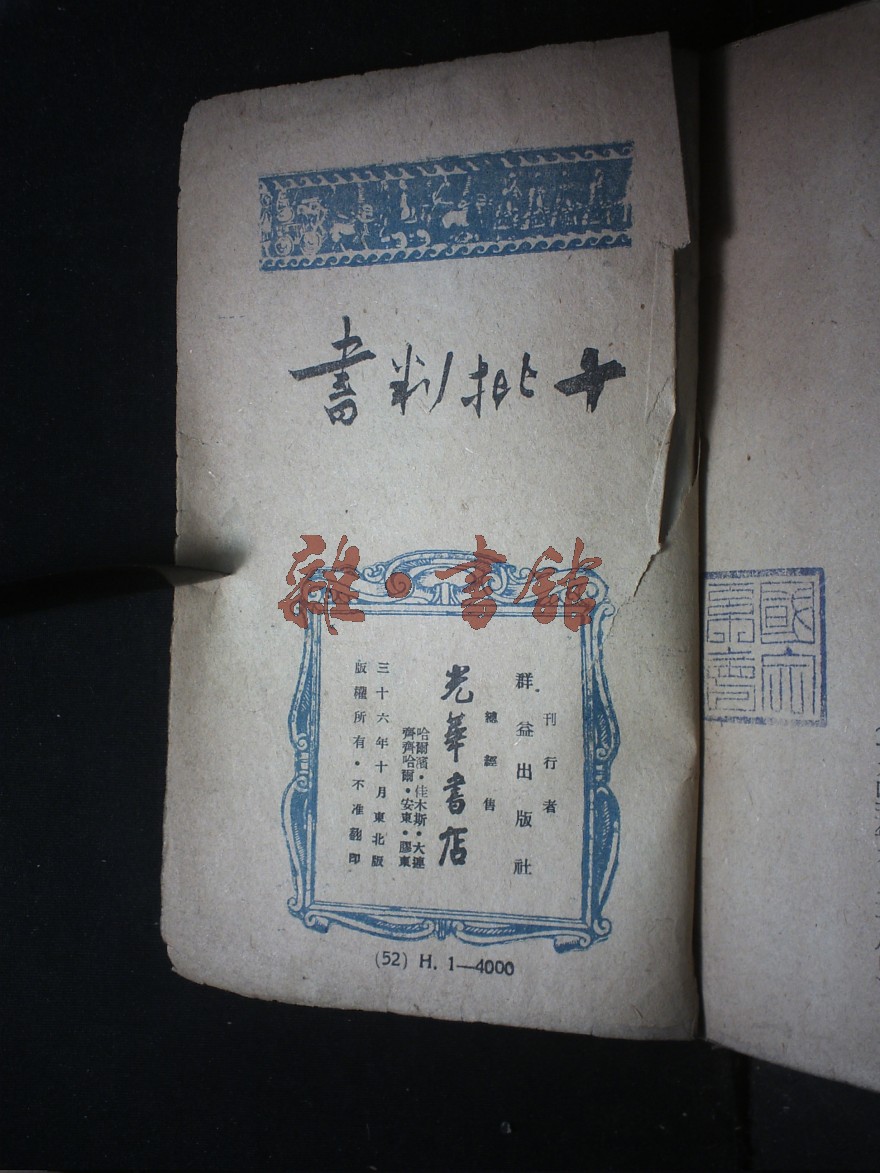 十批判書
雜·書館
刊行者
群益出版社
總經售
光華書店
哈爾濱·佳木斯·大連
齊齊哈爾·安東·膠東
三十六年十月東北版
版權所有·不准翻印
(52) H. 1—4000